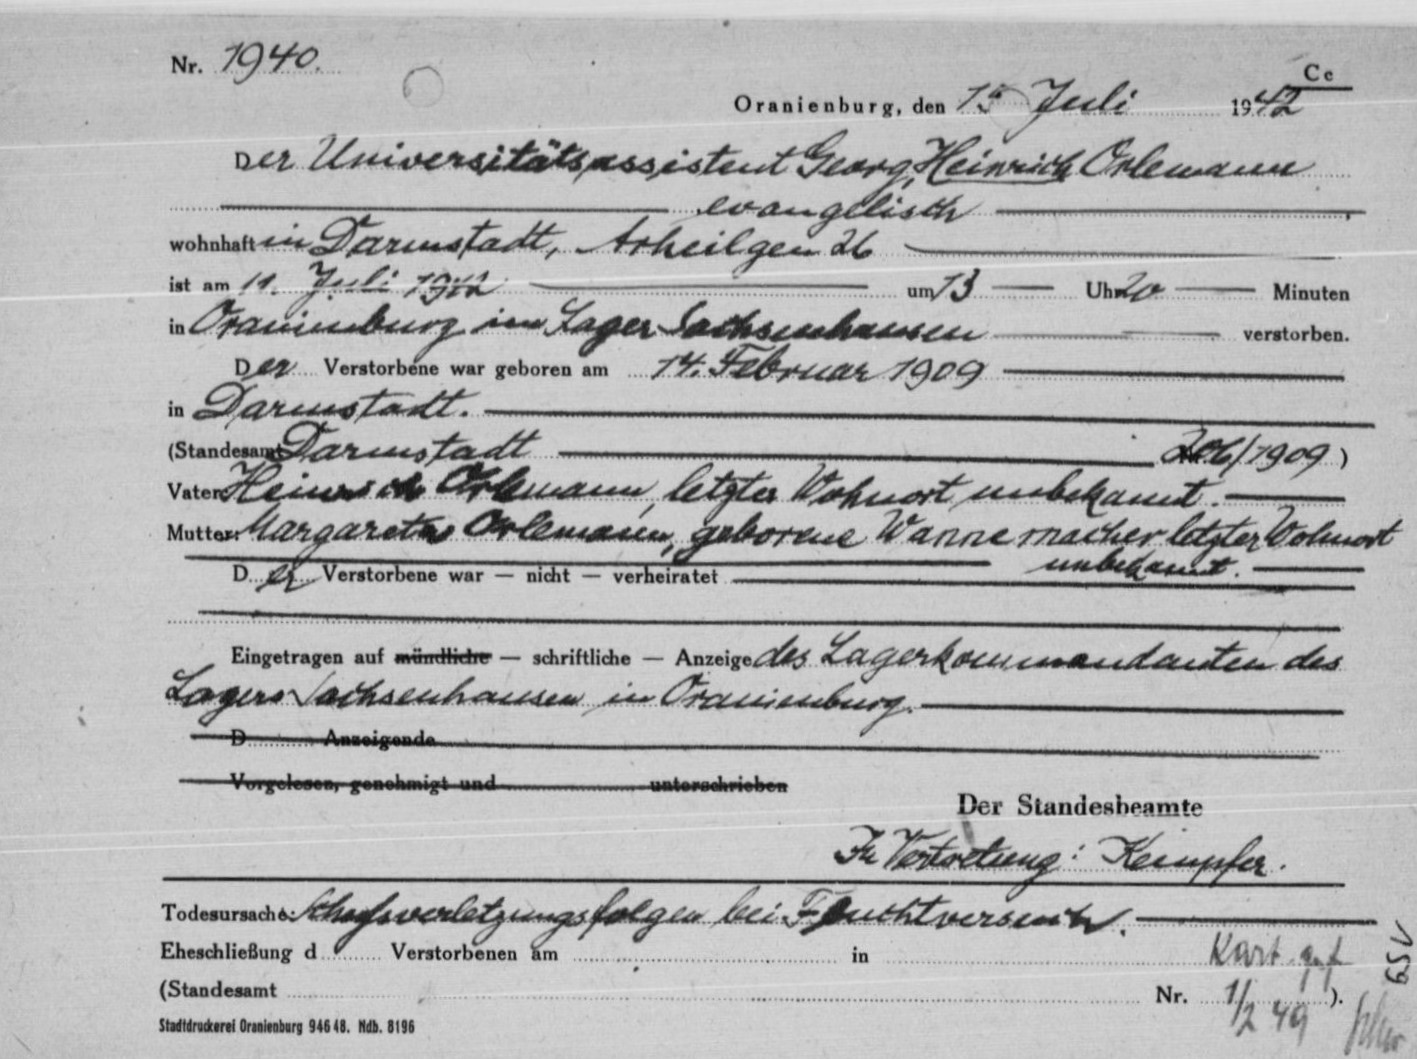 Nr. 1940.
Ce
Oranienburg, den 15. Juli 1942
Der Universitätsassistent Georg, Heinrich Orlemann
evangelisch
wohnhaft in Darmstadt, Arheilgen 26
ist am 11. Juli 1942 um 13 Uhr 20 Minuten
in Oranienburg im Lager Sachsenhausen verstorben.
Der Verstorbene war geboren am 14. Februar 1909
in Darmstadt.
(Standesamt Darmstadt Nr. 206/1909)
Vater: Heinrich Orlemann, letzter Wohnort unbekannt.
Mutter: Margarete Orlemann, geborene Wannemacher letzter Wohnort
unbekannt.
Der Verstorbene war — nicht — verheiratet
Eingetragen auf mündliche — schriftliche — Anzeige des Lagerkommandanten des
Lagers Sachsenhausen in Oranienburg.
D Anzeigende
Vorgelesen, genehmigt und unterschrieben
Der Standesbeamte
In Vertretung: Kempfer.
Todesursache: Schussverletzungsfolgen bei Fluchtversuch.
Eheschließung d Verstorbenen am in
Kart.
(Standesamt Nr. ).
1/2 49
Stadtdruckerei Oranienburg 946 48. Ndb. 8196